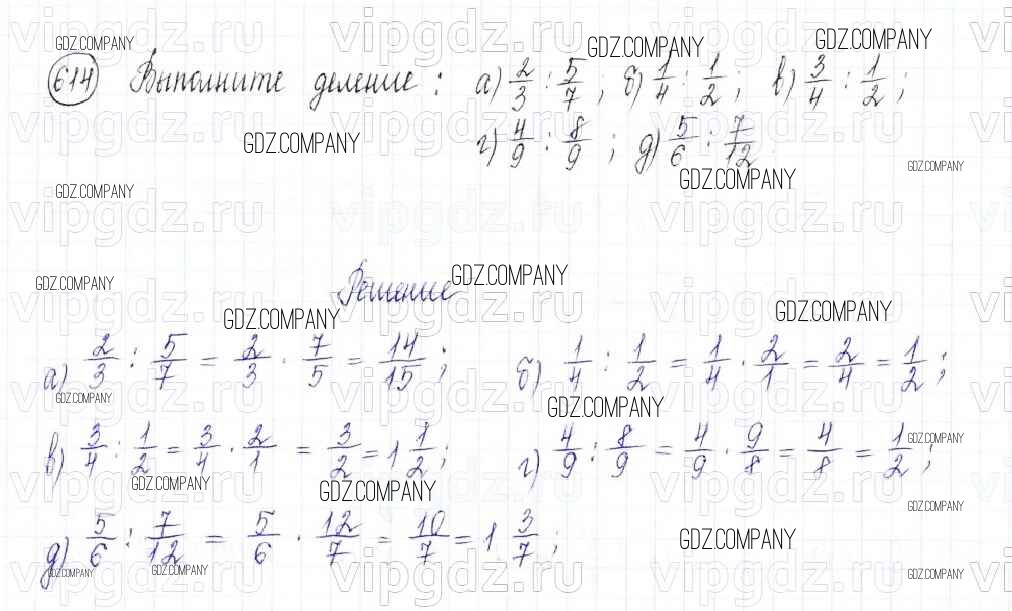 614 Выполните деление: а) 2/3 : 5/7; б) 1/4 : 1/2; в) 3/4 : 1/2;
г) 4/9 : 8/9; д) 5/6 : 7/12
Решение
а) 2/3 : 5/7 = 2/3 · 7/5 = 14/15; б) 1/4 : 1/2 = 1/4 · 2/1 = 2/4 = 1/2;
в) 3/4 : 1/2 = 3/4 · 2/1 = 3/2 = 1 1/2; г) 4/9 : 8/9 = 4/9 · 9/8 = 4/8 = 1/2;
д) 5/6 : 7/12 = 5/6 · 12/7 = 10/7 = 1 3/7;
GDZ.COMPANY
vipgdz.ru